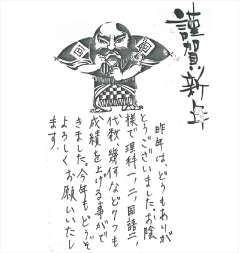 謹賀新年
昨年は、どうもありが
とうございました。お陰
様で理科一、二、国語二、
代数、幾何など7つも
成績を上げる事がで
きました。今年もどうぞ
よろしくお願いいたし
ます。